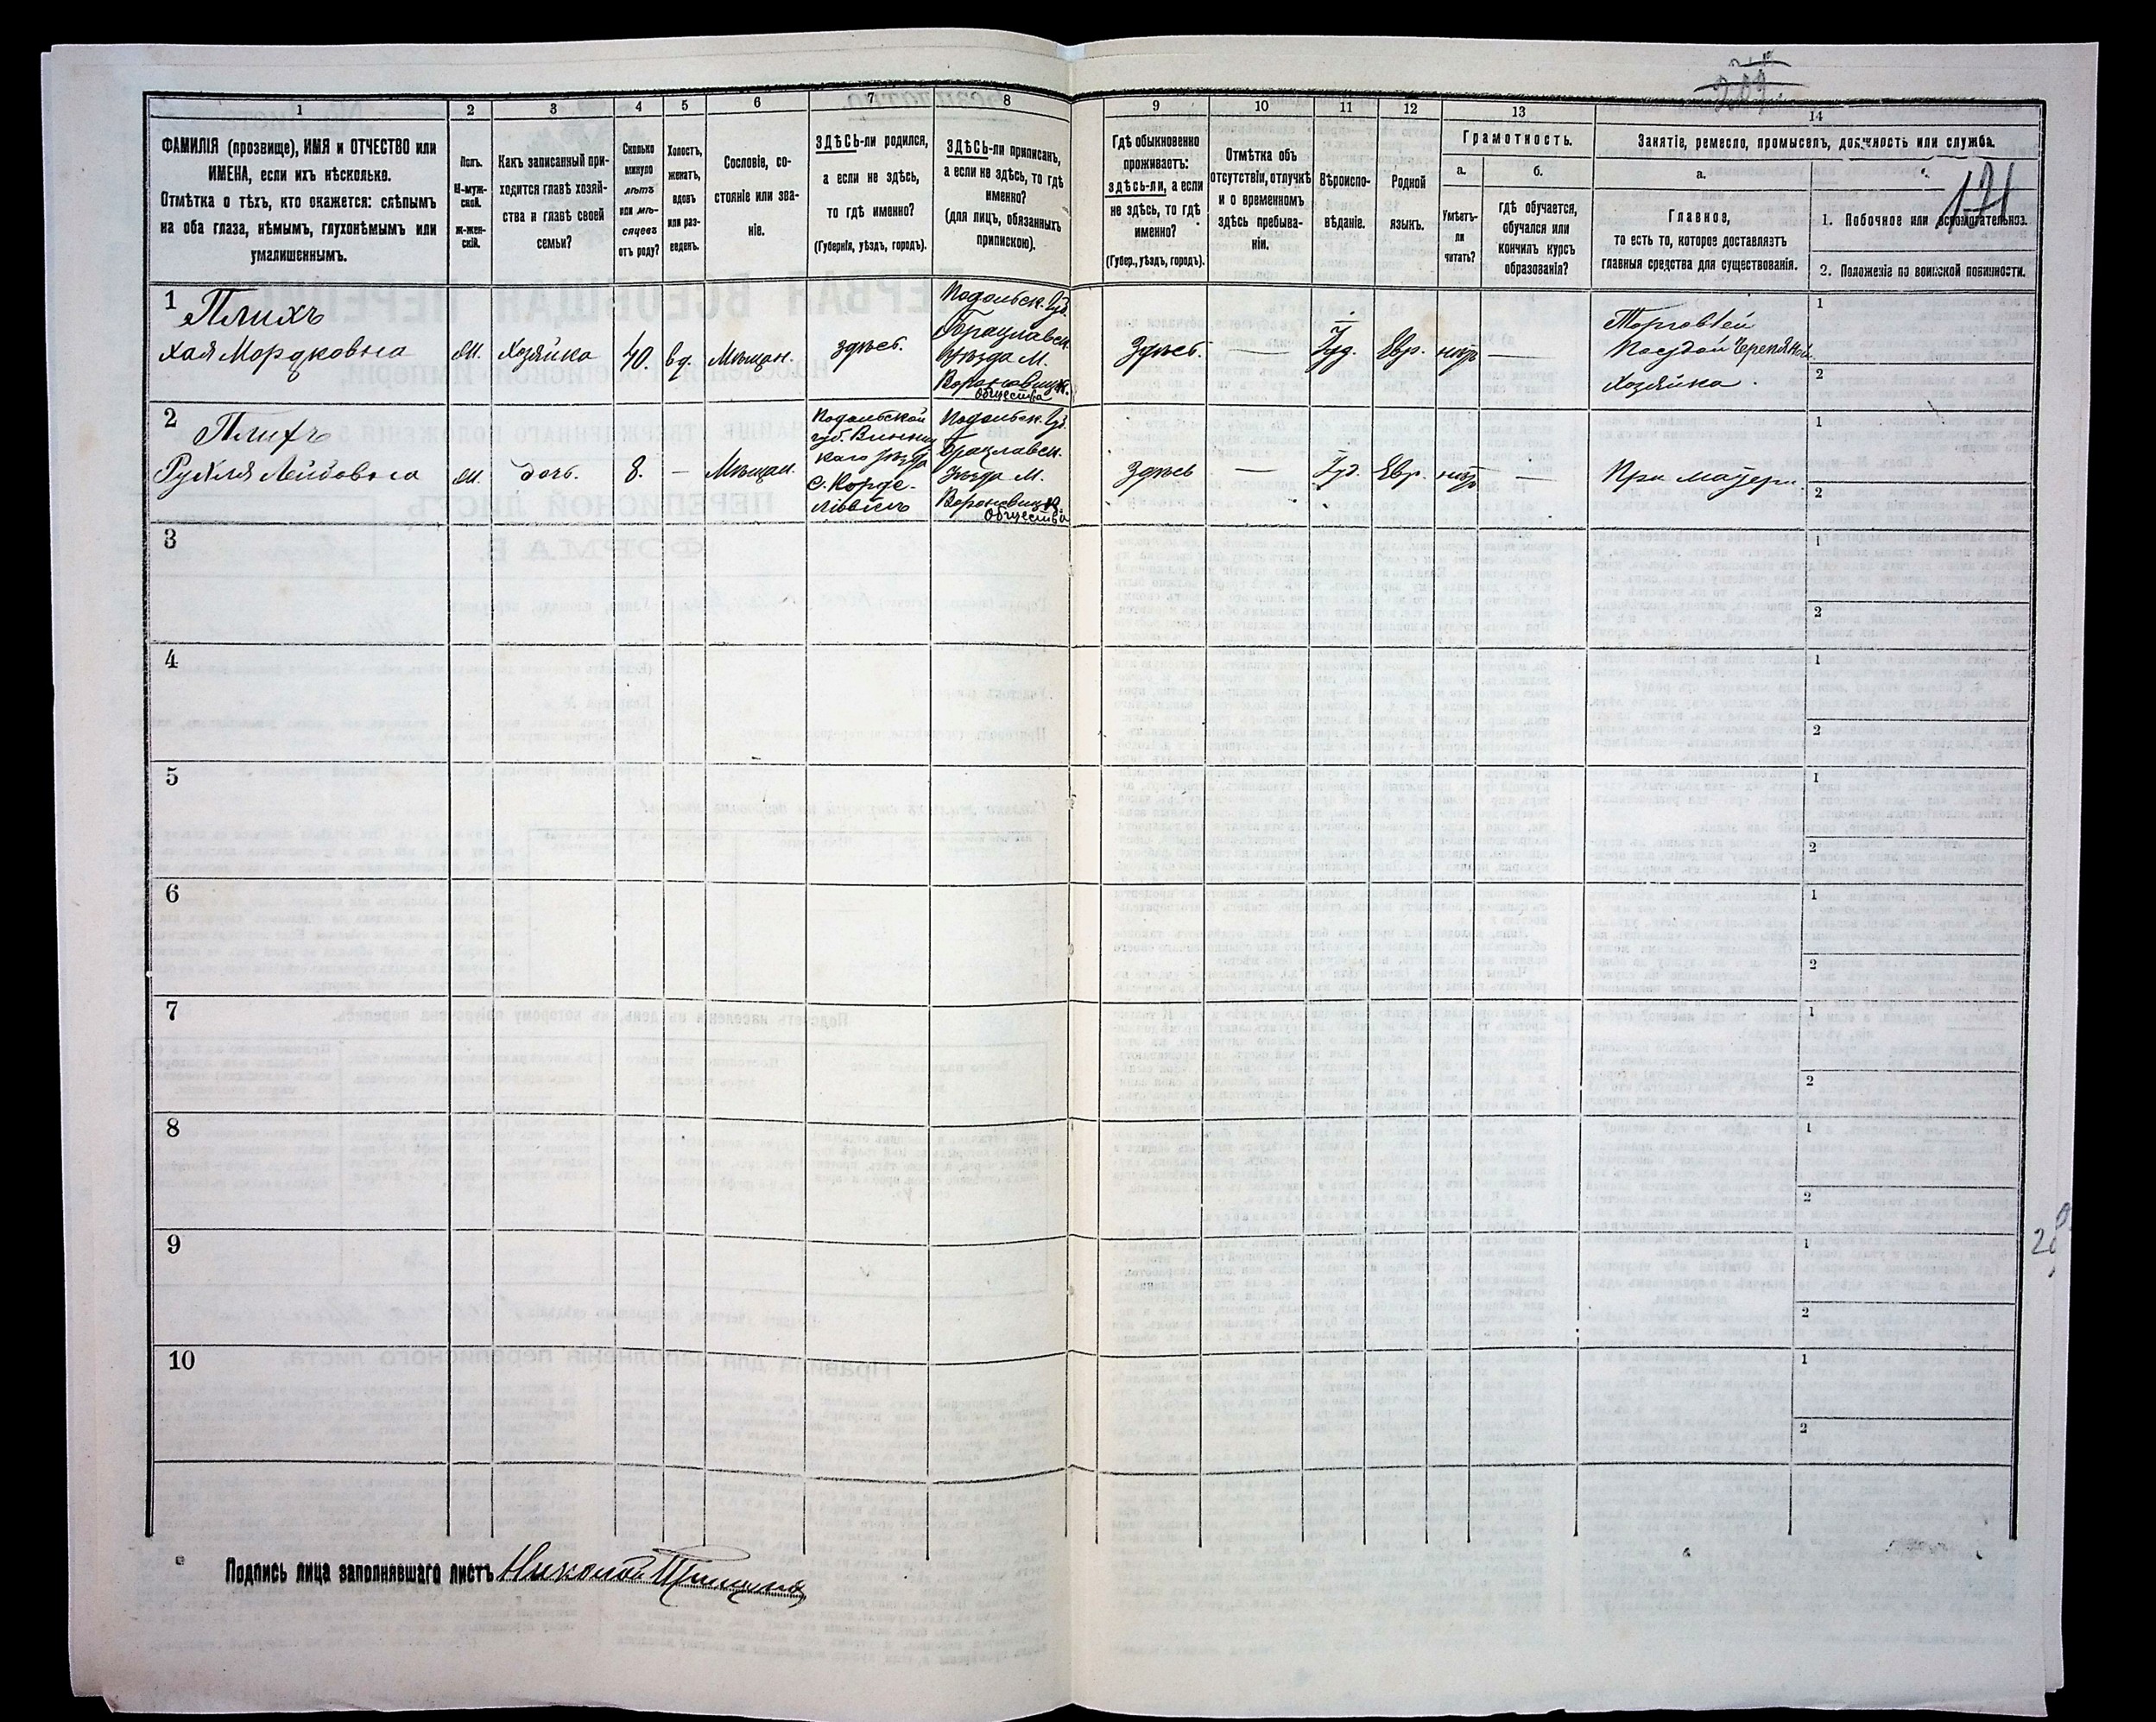 209.
171
1
2
3
4
5
6
7
8
9
10
11
12
13
14
ФАМИЛІЯ (прозвище), ИМЯ и ОТЧЕСТВО или
ИМЕНА, если ихъ нѣсколько.
Отмѣтка о тѣхъ, кто окажется: слѣпымъ
на оба глаза, нѣмымъ, глухонѣмымъ или
умалишеннымъ.
Полъ.
М-муж-
ской.
Ж-жен-
скій.
Какъ записанный при-
ходится главѣ хозяй-
ства и главѣ своей
семьи?
Сколько
минуло
лѣтъ
или мѣ-
сяцевъ
отъ роду?
Холостъ,
женатъ,
вдовъ
или раз-
веденъ.
Сословіе, со-
стояніе или зва-
ніе.
ЗДѢСЬ-ли родился,
а если не здѣсь,
то гдѣ именно?
(Губернія, уѣздъ, городъ).
ЗДѢСЬ-ли приписанъ,
а если не здѣсь, то гдѣ
именно?
(для лицъ, обязанныхъ
припискою).
Гдѣ обыкновенно
проживаетъ:
здѣсь-ли, а если
не здѣсь, то гдѣ
именно?
(Губер., уѣздъ, городъ).
Отмѣтка объ
отсутствіи, отлучкѣ
и о временномъ
здѣсь пребыва-
ніи.
Вѣроиспо-
вѣданіе.
Родной
языкъ.
Грамотность.
а.
Умѣетъ-
ли
читать?
б.
гдѣ обучается,
обучался или
кончилъ курсъ
образованія?
Занятіе, ремесло, промыселъ, должность или служба.
а.
Главное,
то есть то, которое доставляетъ
главныя средства для существованія.
1. Побочное или вспомогательноз.
2. Положеніе по воинской повинности.
1
Плихъ
Хая Мордковна
Хозяйка
40.
вд.
Мѣщан.
здѣсь.
Подольск. Губ.
Брацлавск.
Уѣзда М.
Вороновицк.
Общества
Здѣсь.
—
Іуд.
Евр.
нѣтъ
—
Торговлей
Посудой Черепяной
Хозяйка.
1
2
2
Плихъ
Рухля Лейбовна
дочь.
8.
—
Мѣщан.
Подольской
губ. Винниц
каго уѣзда
с. Корде-
Подольск. Губ.
Брацлавск.
Уѣзда М.
Вороновицк.
Общества
Здѣсь
—
Іуд.
Евр.
нѣтъ
—
При матери
1
2
3
1
2
4
1
2
5
1
2
6
1
2
7
1
2
8
1
2
9
1
2
10
1
2
Подпись лица заполнявшаго листъ Николай